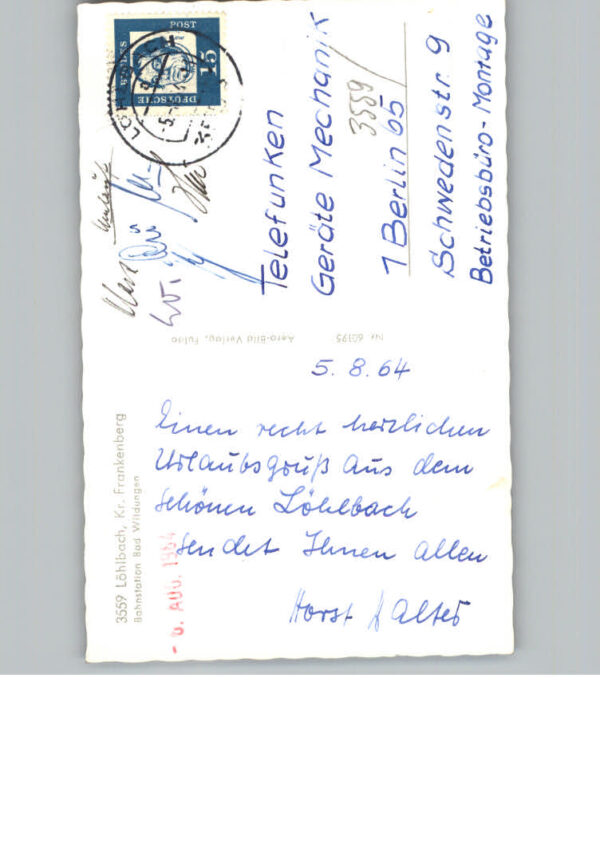 5. 8. 64
Einen recht herzlichen
Urlaubsgruß aus dem
schönen Löhlbach
sendet Ihnen allen
Horst
Telefunken
Geräte Mechanik
3559
1 Berlin 65
Schwedenstr. 9
Betriebsbüro - Montage
DEUTSCHE
BUNDES
POST
15
3559 Löhlbach, Kr. Frankenberg
Bahnstation Bad Wildungen
Aero-Bild Verlag, Fulda
Nr. 60195
AUG. 1964